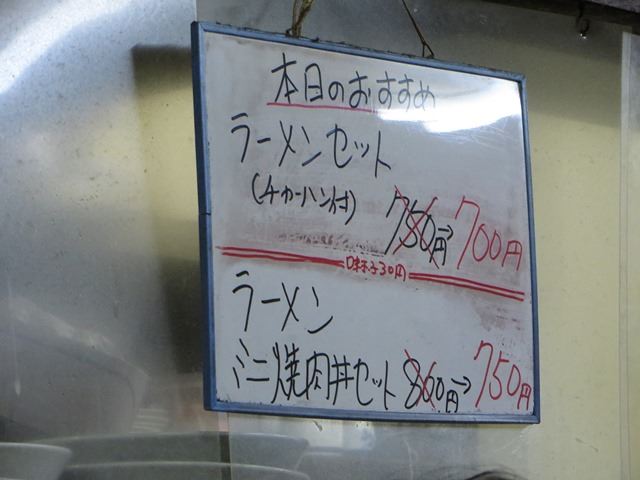 本日のおすすめ
ラーメンセット
(チャーハン付) 750円→700円
味玉30円
ラーメン
ミニ焼肉丼セット 800円→750円